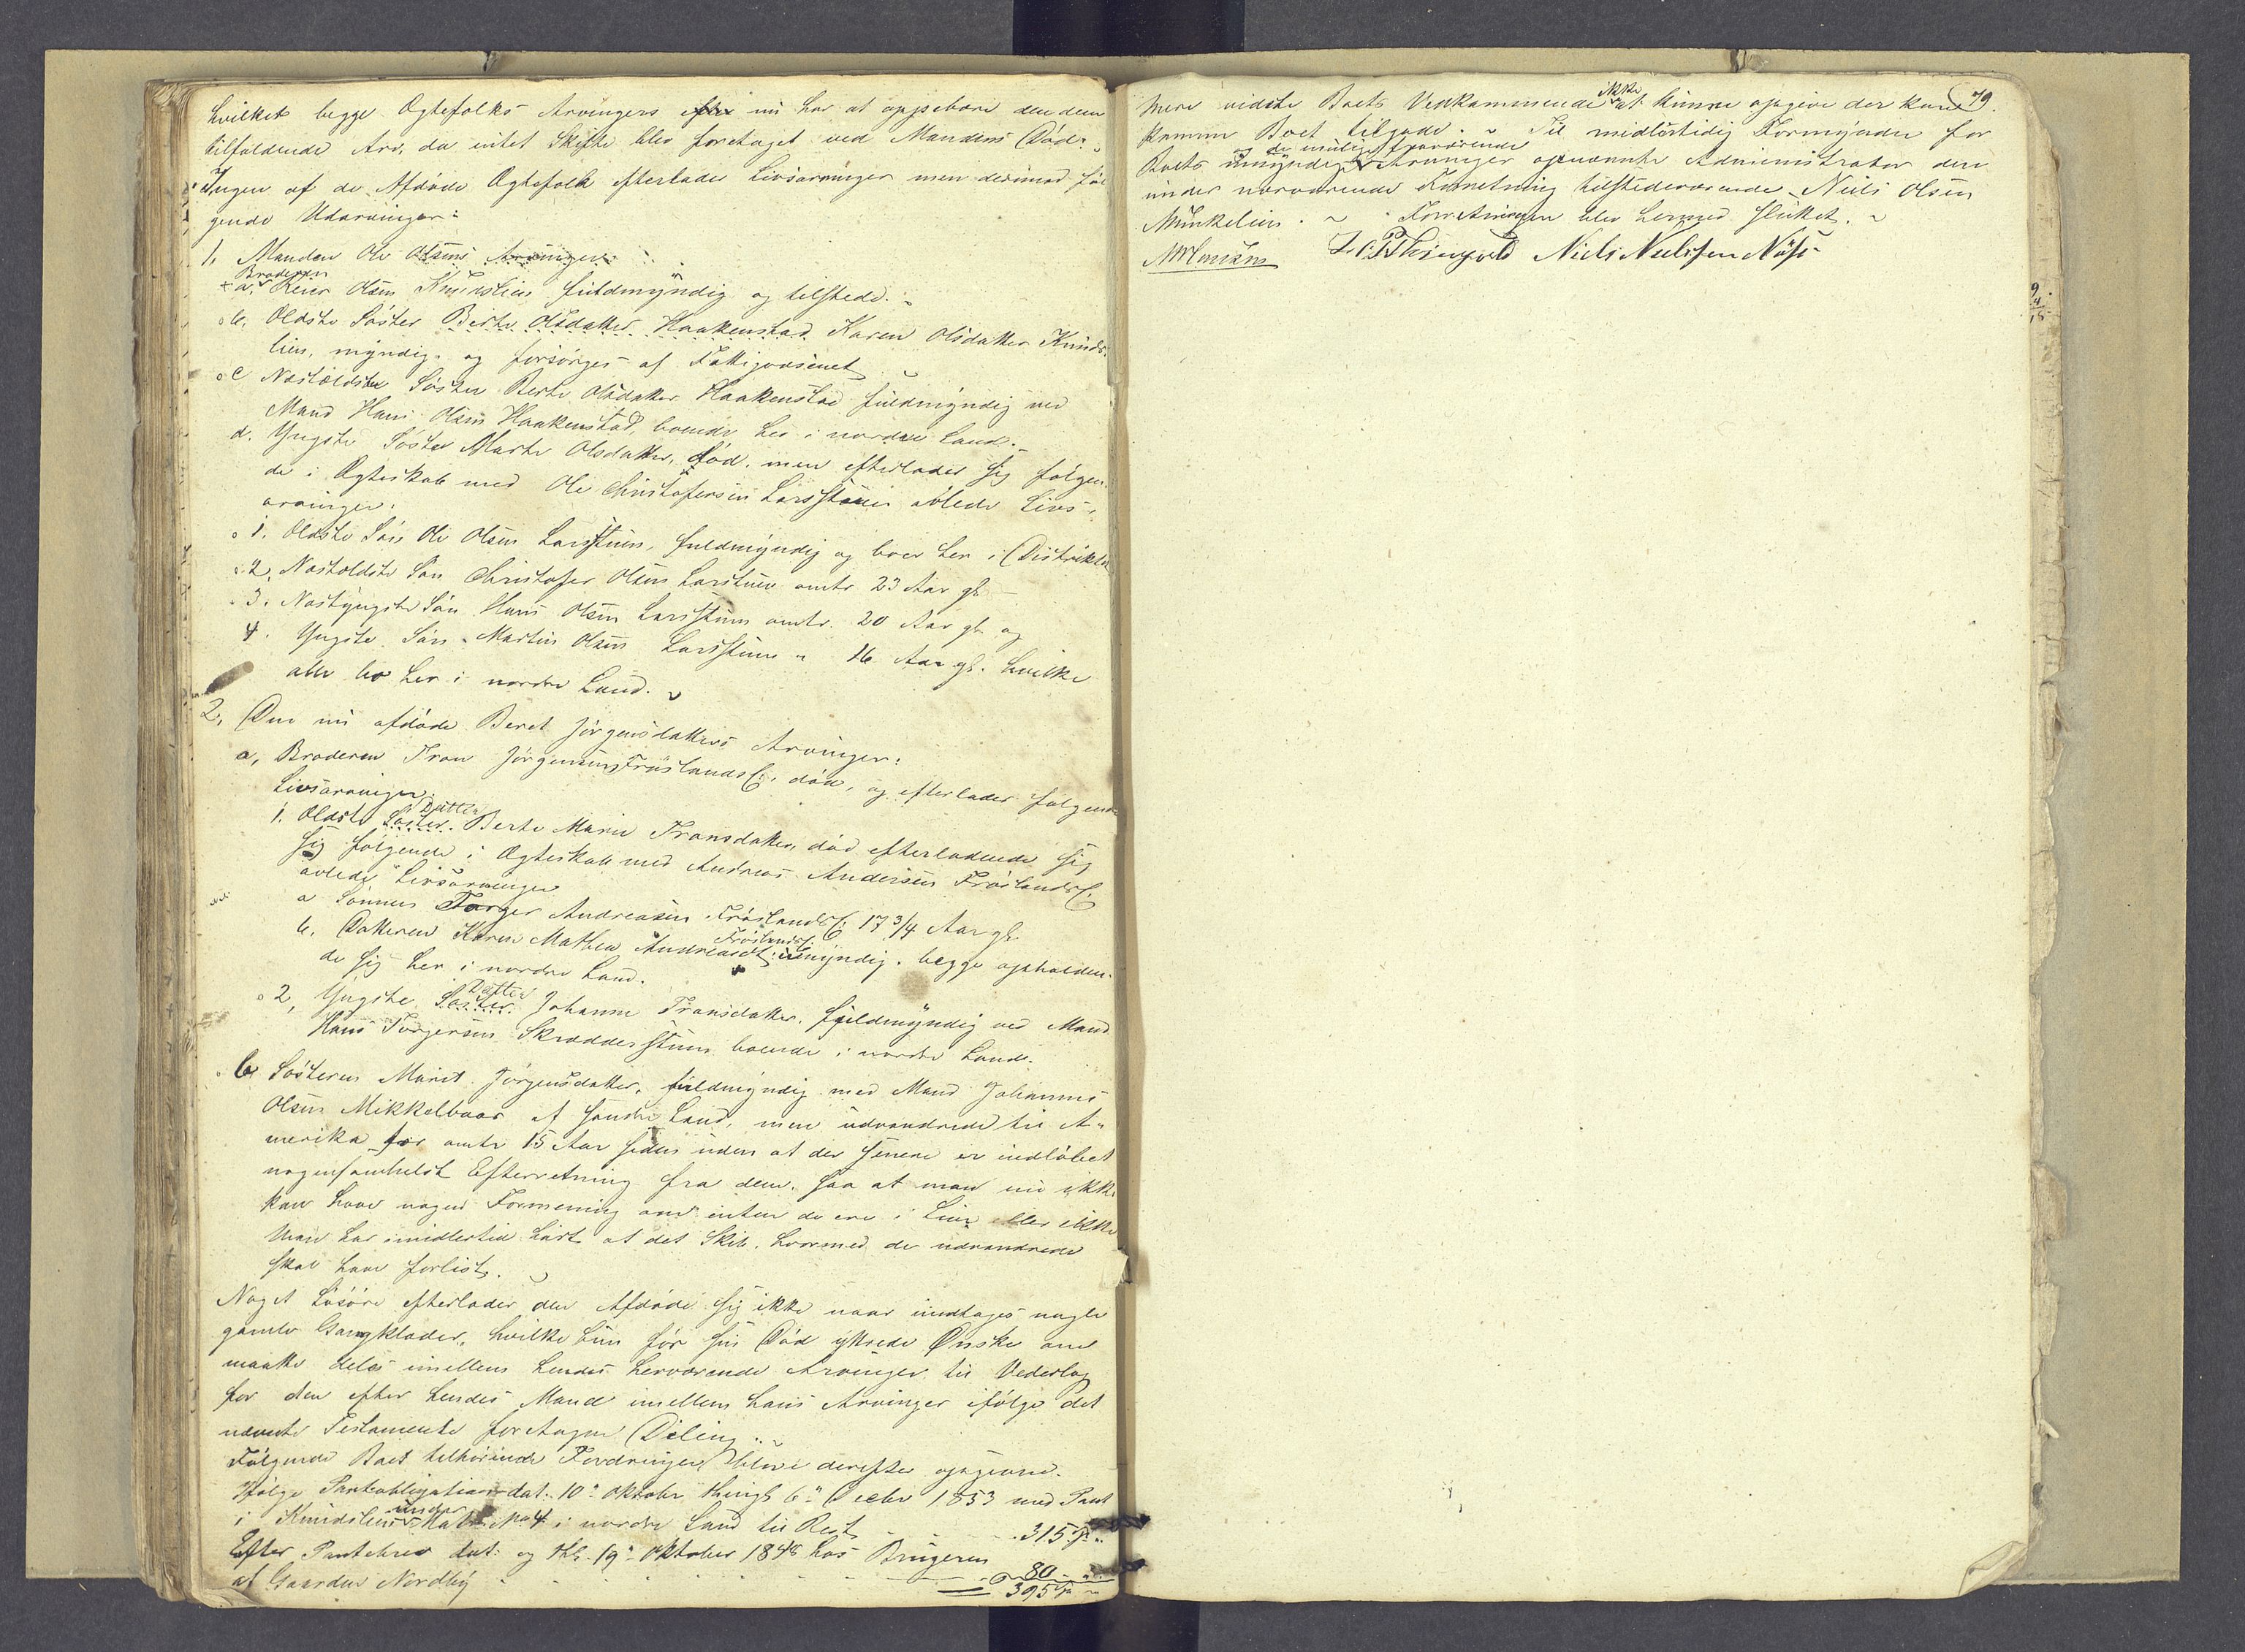 hvilket begge Ægtefolks Arvingers efter nu har at oppebære den dem
tilfaldende Arv, da intet Skifte blev foretaget ved Mandens Død.
Ingen af de Afdøde Ægtefolk efterlader Livsarvinger men derimod føl
gende Udarvinger:
1. Manden Ole Olsens Arvinger:
Broderen
a. Peder Olsen Knudslien fuldmyndig og tilstede.
b. Ældste Søster Berte Olsdatter Haakenstad Karen Olsdatter Knuds-
lien, myndig og forsørges af Fattigvæsenet
c Næstældste Søster Berte Olsdatter Haakenstad fuldmyndig ved
Mand Hans Olsen Haakenstad, boende her i nordre Land.
d. Yngste Søster Marte Olsdatter, død, men efterlader sig følgen-
de i Ægteskab med Ole Christofersen Larsstuen avlede Livs-
arvinger:
1. Ældste Søn Ole Olsen Larsstuen, fuldmyndig og boer her i Distriktet
2. Næstældste Søn Christofer Olsen Larstuen omtr 23 Aar gl.
3. Næstyngste Søn Hans Olsen Larsstuen omtr. 20 Aar gl. og
4. Yngste Søn Martin Olsen Larsstuen " 16 Aar gl. hvilke
alle bo her i nordre Land.
2. Den nu afdøde Beret Jørgensdatters Arvinger:
a, Broderen Tron Jørgensen Frøslandse. død, og efterlader følgende
Livsarvinger:
Datter
1. Ældste Søster Berte Marie Tronsdatter, død efterladende sig
sig følgende i Ægteskab med Andreas Andersen Frøslandse.
avlede Livsarvinger
a Sønnen Torger Andreasen Frøslandse. 17 3/4 Aar gl.
Frøslandse.
b. Datteren Karen Mathea Andreasdt. umyndig. begge opholden-
de sig her i nordre Land.
Datter
2, Yngste Søster Johanne Tronsdatter. fuldmyndig ved Mand
Hans Torgersen Skræddersstuen boende i nordre Land.
b, Søsteren Marit Jørgensdatter, fuldmyndig med Mand Johannes
Olsen Mikkelboar af søndre Land, men udvandrede til A-
merika for omtr 15 Aar siden uden at der senere er indløbet
nogensomhelst Efterretning fra dem, saa at man nu ikke
kan have nogen Formening om enten de ere i Live eller ikke
Man har imidlertid hørt at det Skib, hvormed de udvandrede
skal have forlist.
Noget Løsøre efterlader den Afdøde sig ikke naar undtages nogle
gamle Gangklæder, hvilke hun før sin Død yttrede Ønske om
maatte deles imellem hendes herværende Arvinger til Vederlag
for den efter hendes Mand imellem hans Arvinger ifølge det
nævnte Testamente foretagne Deling.
Følgende Boet tilhørende Fordringer blev derefter opgivne.
Ifølge Panteobligation dat. 10de Oktober thingl. 6te Decbr 1853 med Pant
under
i Knudslien Matr. No 4 i nordre Land til Rest 315
Efter Pantebrev dat. og thl. 19de Oktober 1848 hos Brugeren
af Gaarden Nordby 80
395
79.
ikke
Mere vidste Boets Vedkommende at kunne opgive der kunne
komme Boet tilgode. Til midlertidig Formynder for
og de muligt fraværende
Boets umyndige Arvinger opnævnte Administrator den
under nærværende Forretning tilstedeværende Niels Olsen
Munkelien. Forretningen blev hermed sluttet.
Niels Nielsen
9
4
15